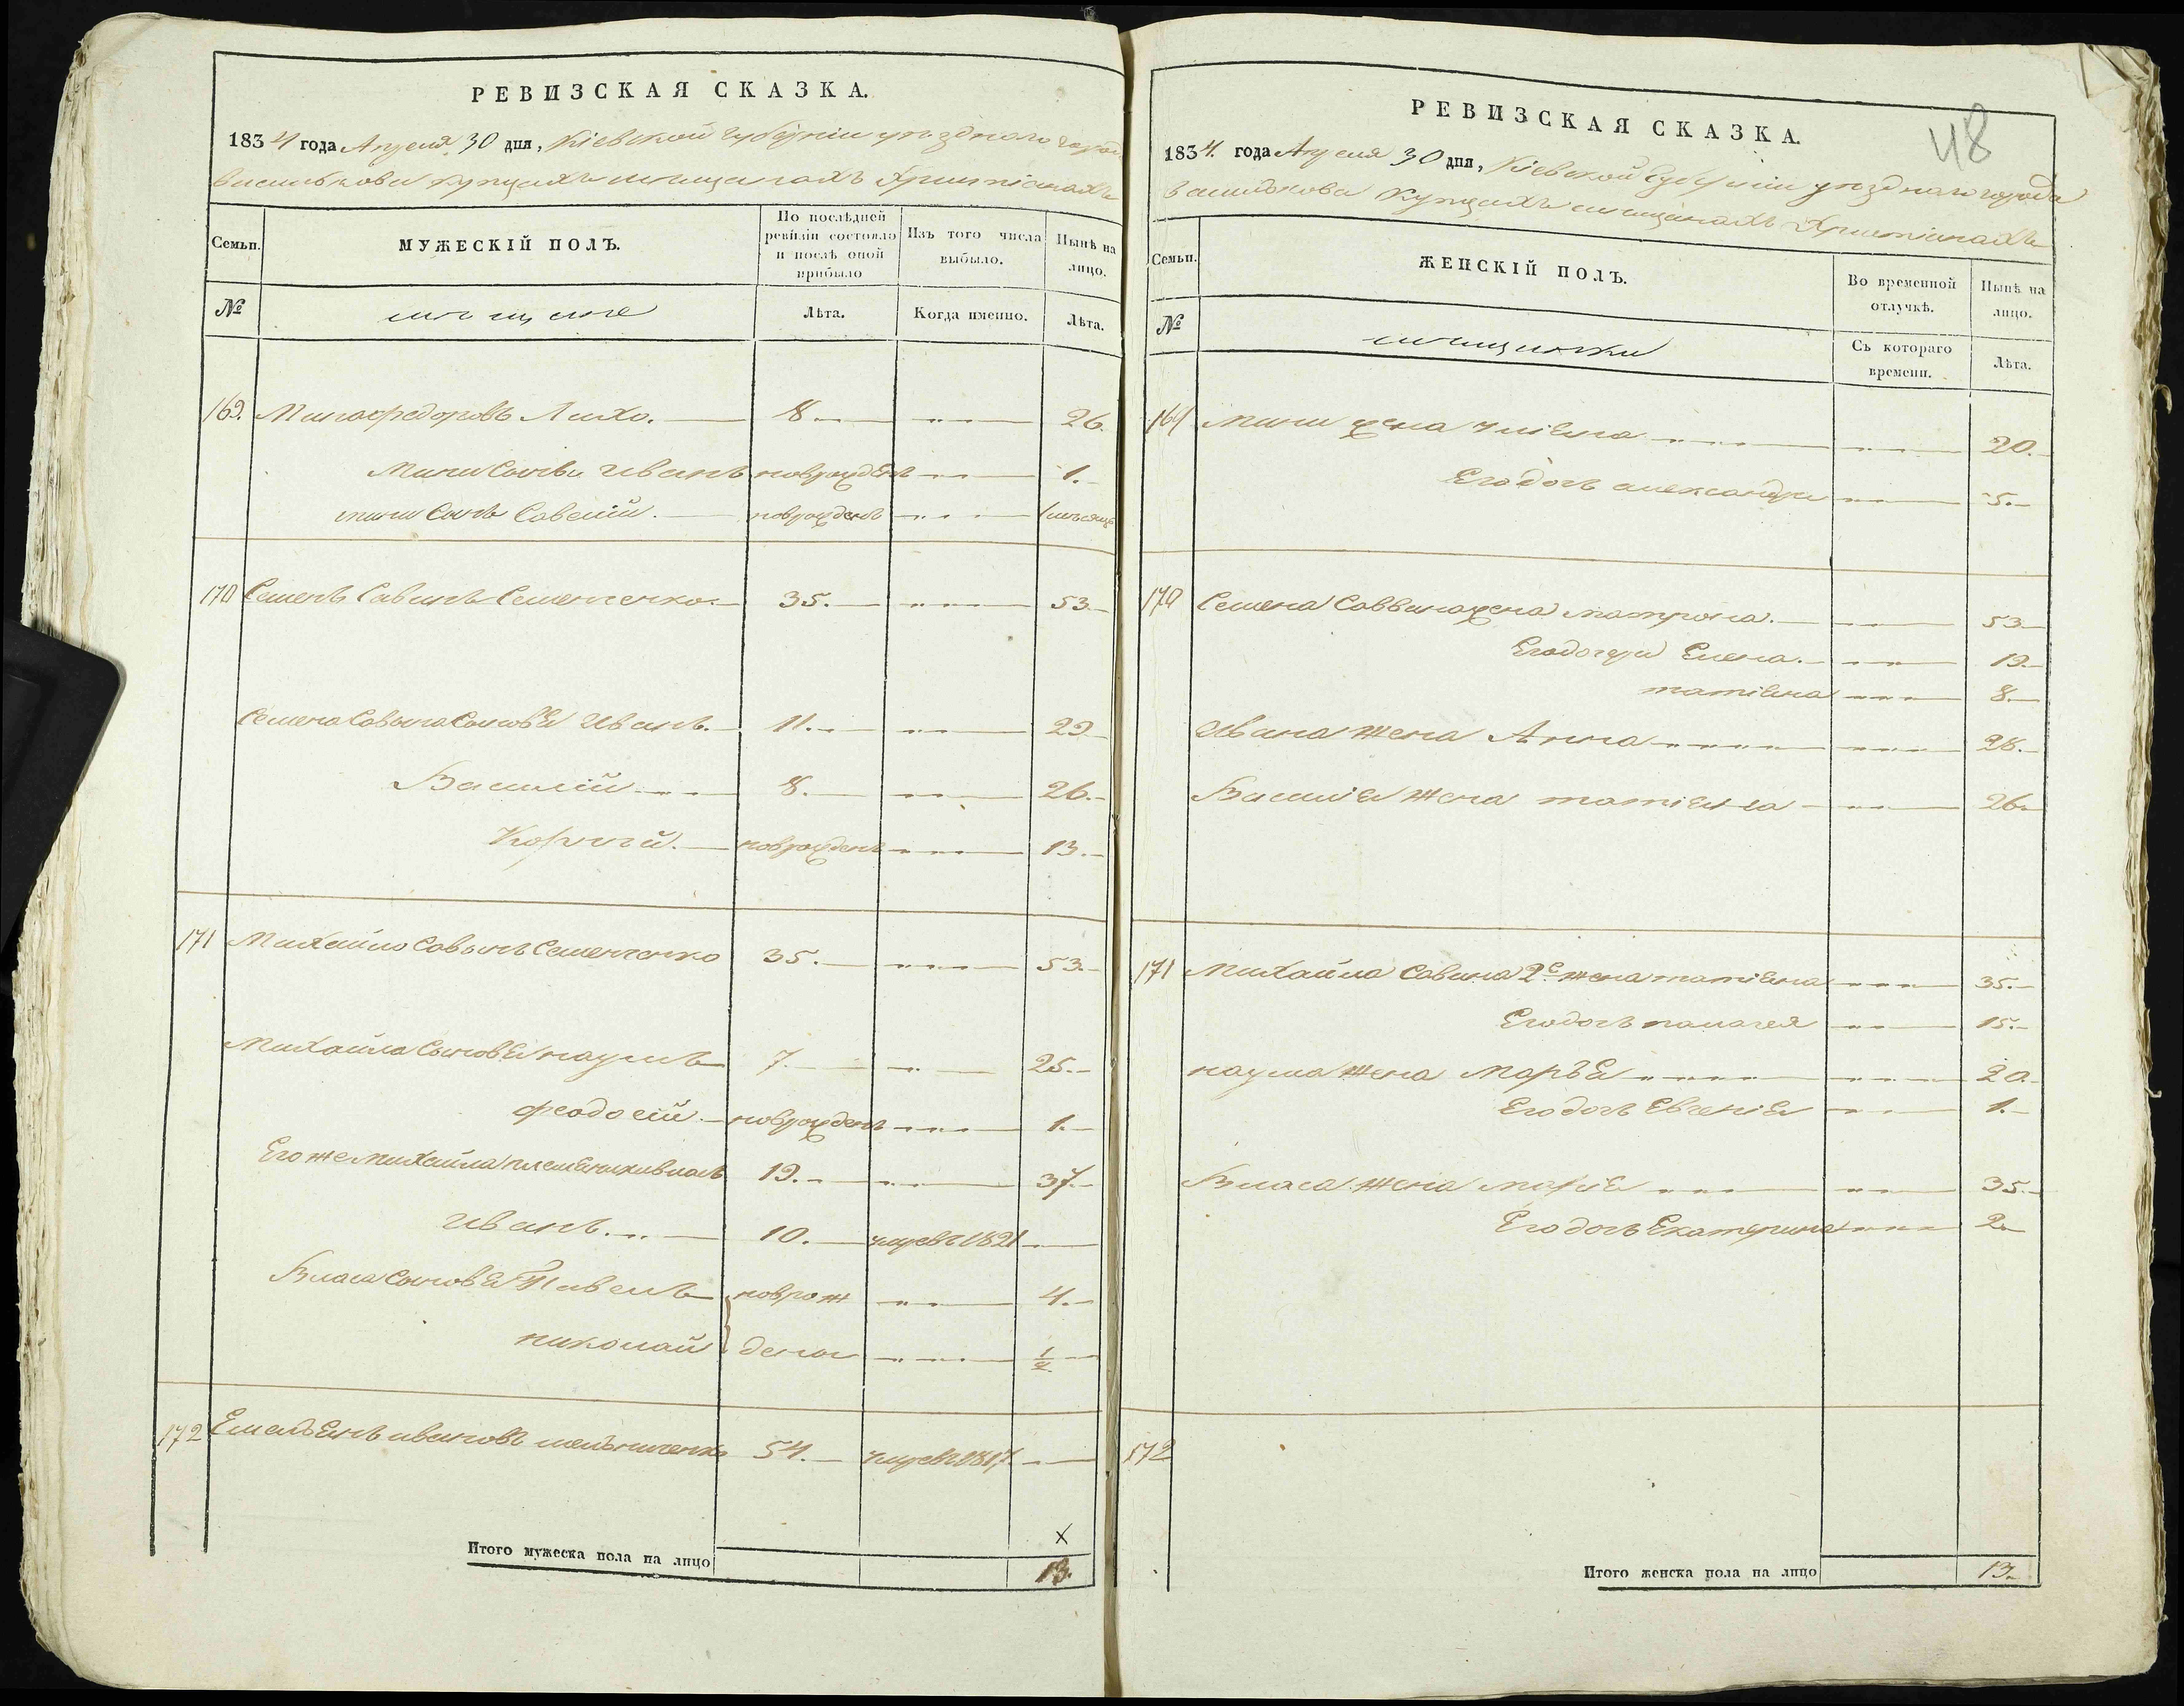 РЕВИЗСКАЯ СКАЗКА.
1834 года Апреля 30 дня, Кіевской губерніи уезднаго города
Василькова купцахъ мещанахъ Християнахъ
Семьи.
МУЖЕСКІЙ ПОЛЪ.
По послѣдней ревизіи состояло и послѣ оной прибыло
Изъ того числа выбыло.
Нынѣ на лицо.
№
мещане
Лѣта.
Когда именно.
Лѣта.
169. Мина Федоровъ Лихо. 8. 26.
Мини Сыновья Иванъ новрожденъ 1.
мини Сынъ Савелій. новрожденъ 1 месяцъ
170 Семенъ Савинъ Семенченко. 35. 53.
Семена Савина Сыновья Иванъ. 11. 29.
Василій 8. 26.
Корней. новрожденъ 13.
171 Михайло Савинъ Семенченко 35. 53.
Михайла Сыновья наумъ 7. 25.
феодосій новрожденъ 1.
Его же михайла племеники власъ 19. 37.
иванъ 10. умре въ 1821
Власа Сыновья Павелъ новрож 4.
николай дены 1/2
172 Емельянъ ивановъ мельниченко 54. умре въ 1817.
Итого мужеска пола на лицо
X
13.
48
РЕВИЗСКАЯ СКАЗКА.
1834. года Апреля 30 дня, Кіевской Губерніи уезднаго города
Василькова Купцахъ мещанахъ Християнахъ
Семьи.
ЖЕНСКІЙ ПОЛЪ.
Во временной отлучкѣ.
Нынѣ на лицо.
№
мещанки
Съ котораго времени.
Лѣта.
169 мини жена улияна 20.
Его дочь александра 5.
170 Семена Саввина жена матрона. 53
Его дочери Елена. 19.
татіяна 8.
Ивана жена Анна 28.
Василія жена татіяна 26
171 Михайла Савина 2я жена татіяна 35.
Его дочь палагея 15.
наума жена марья 20.
Его дочь Евгенія 1.
Власа жена марія 35.
Его дочь Екатерина 2.
172
Итого женска пола на лицо 13.